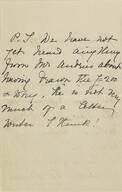 P.S. We have not
yet heard anything
from Mr Andrus about
money drawn the £200
& Dory, he is not very
much of a letter
writer I think!